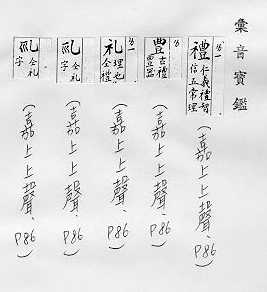 彙音寶鑑
禮 仁義禮智信五常理
(嘉上上聲、P86)
豊 古禮豊器
(嘉上上聲、P86)
礼 理也仝禮
(嘉上上聲、P86)
仝礼
字
(嘉上上聲、P86)
仝礼
字
(嘉上上聲、P86)